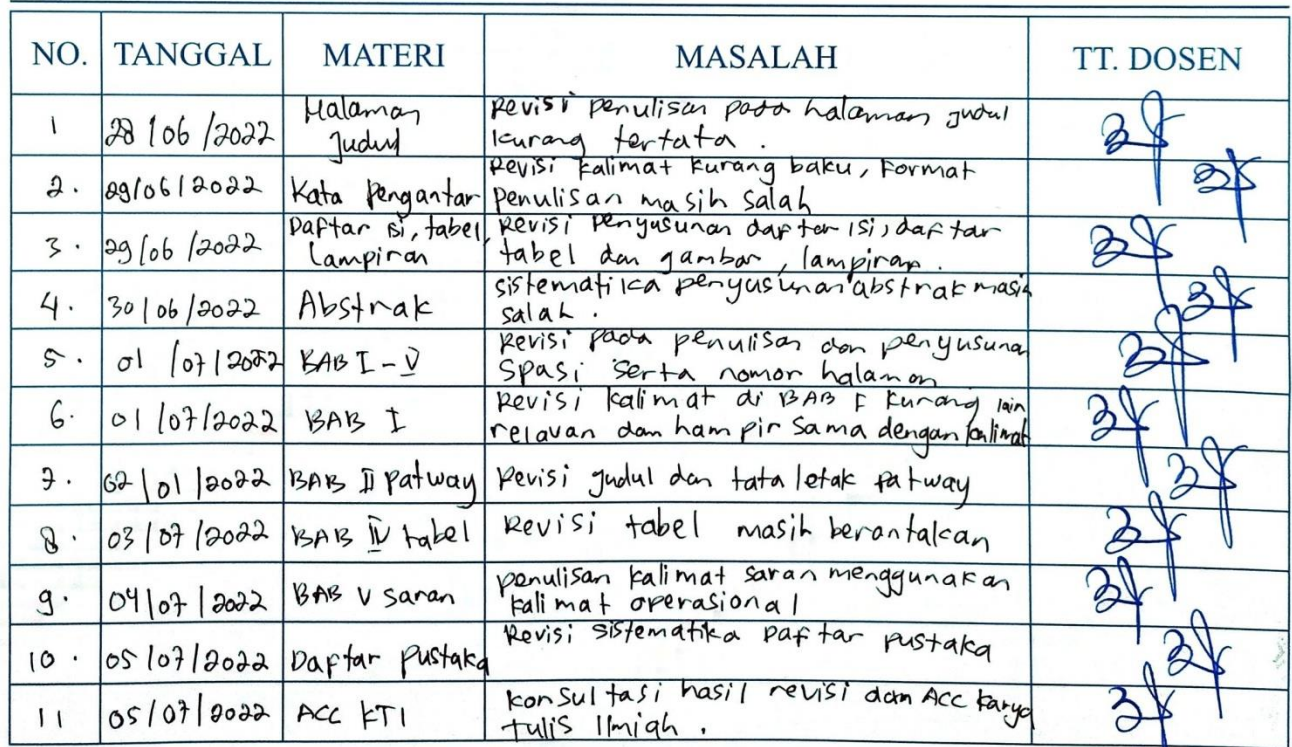 NO. TANGGAL MATERI MASALAH TT. DOSEN
1 28/06/2022 Halaman Judul Revisi penulisan pada halaman judul
kurang tertata.
2. 29/06/2022 Kata Pengantar Revisi kalimat kurang baku, Format
penulisan masih salah
3. 29/06/2022 Daftar isi, tabel, Lampiran Revisi penyusunan daftar isi, daftar
tabel dan gambar, lampiran.
4. 30/06/2022 Abstrak sistematika penyusunan abstrak masih
salah.
5. 01/07/2022 BAB I-V Revisi pada penulisan dan penyusunan
spasi serta nomor halaman
6. 01/07/2022 BAB I Revisi kalimat di BAB I kurang
relavan dan hampir sama dengan kalimat lain
7. 02/01/2022 BAB II patway Revisi judul dan tata letak patway
8. 03/07/2022 BAB IV tabel Revisi tabel masih berantakan
9. 04/07/2022 BAB V saran penulisan kalimat saran menggunakan
kalimat operasional
10. 05/07/2022 Daftar pustaka Revisi sistematika Daftar pustaka
11 05/07/2022 ACC KTI konsultasi hasil revisi dan ACC karya
tulis Ilmiah.